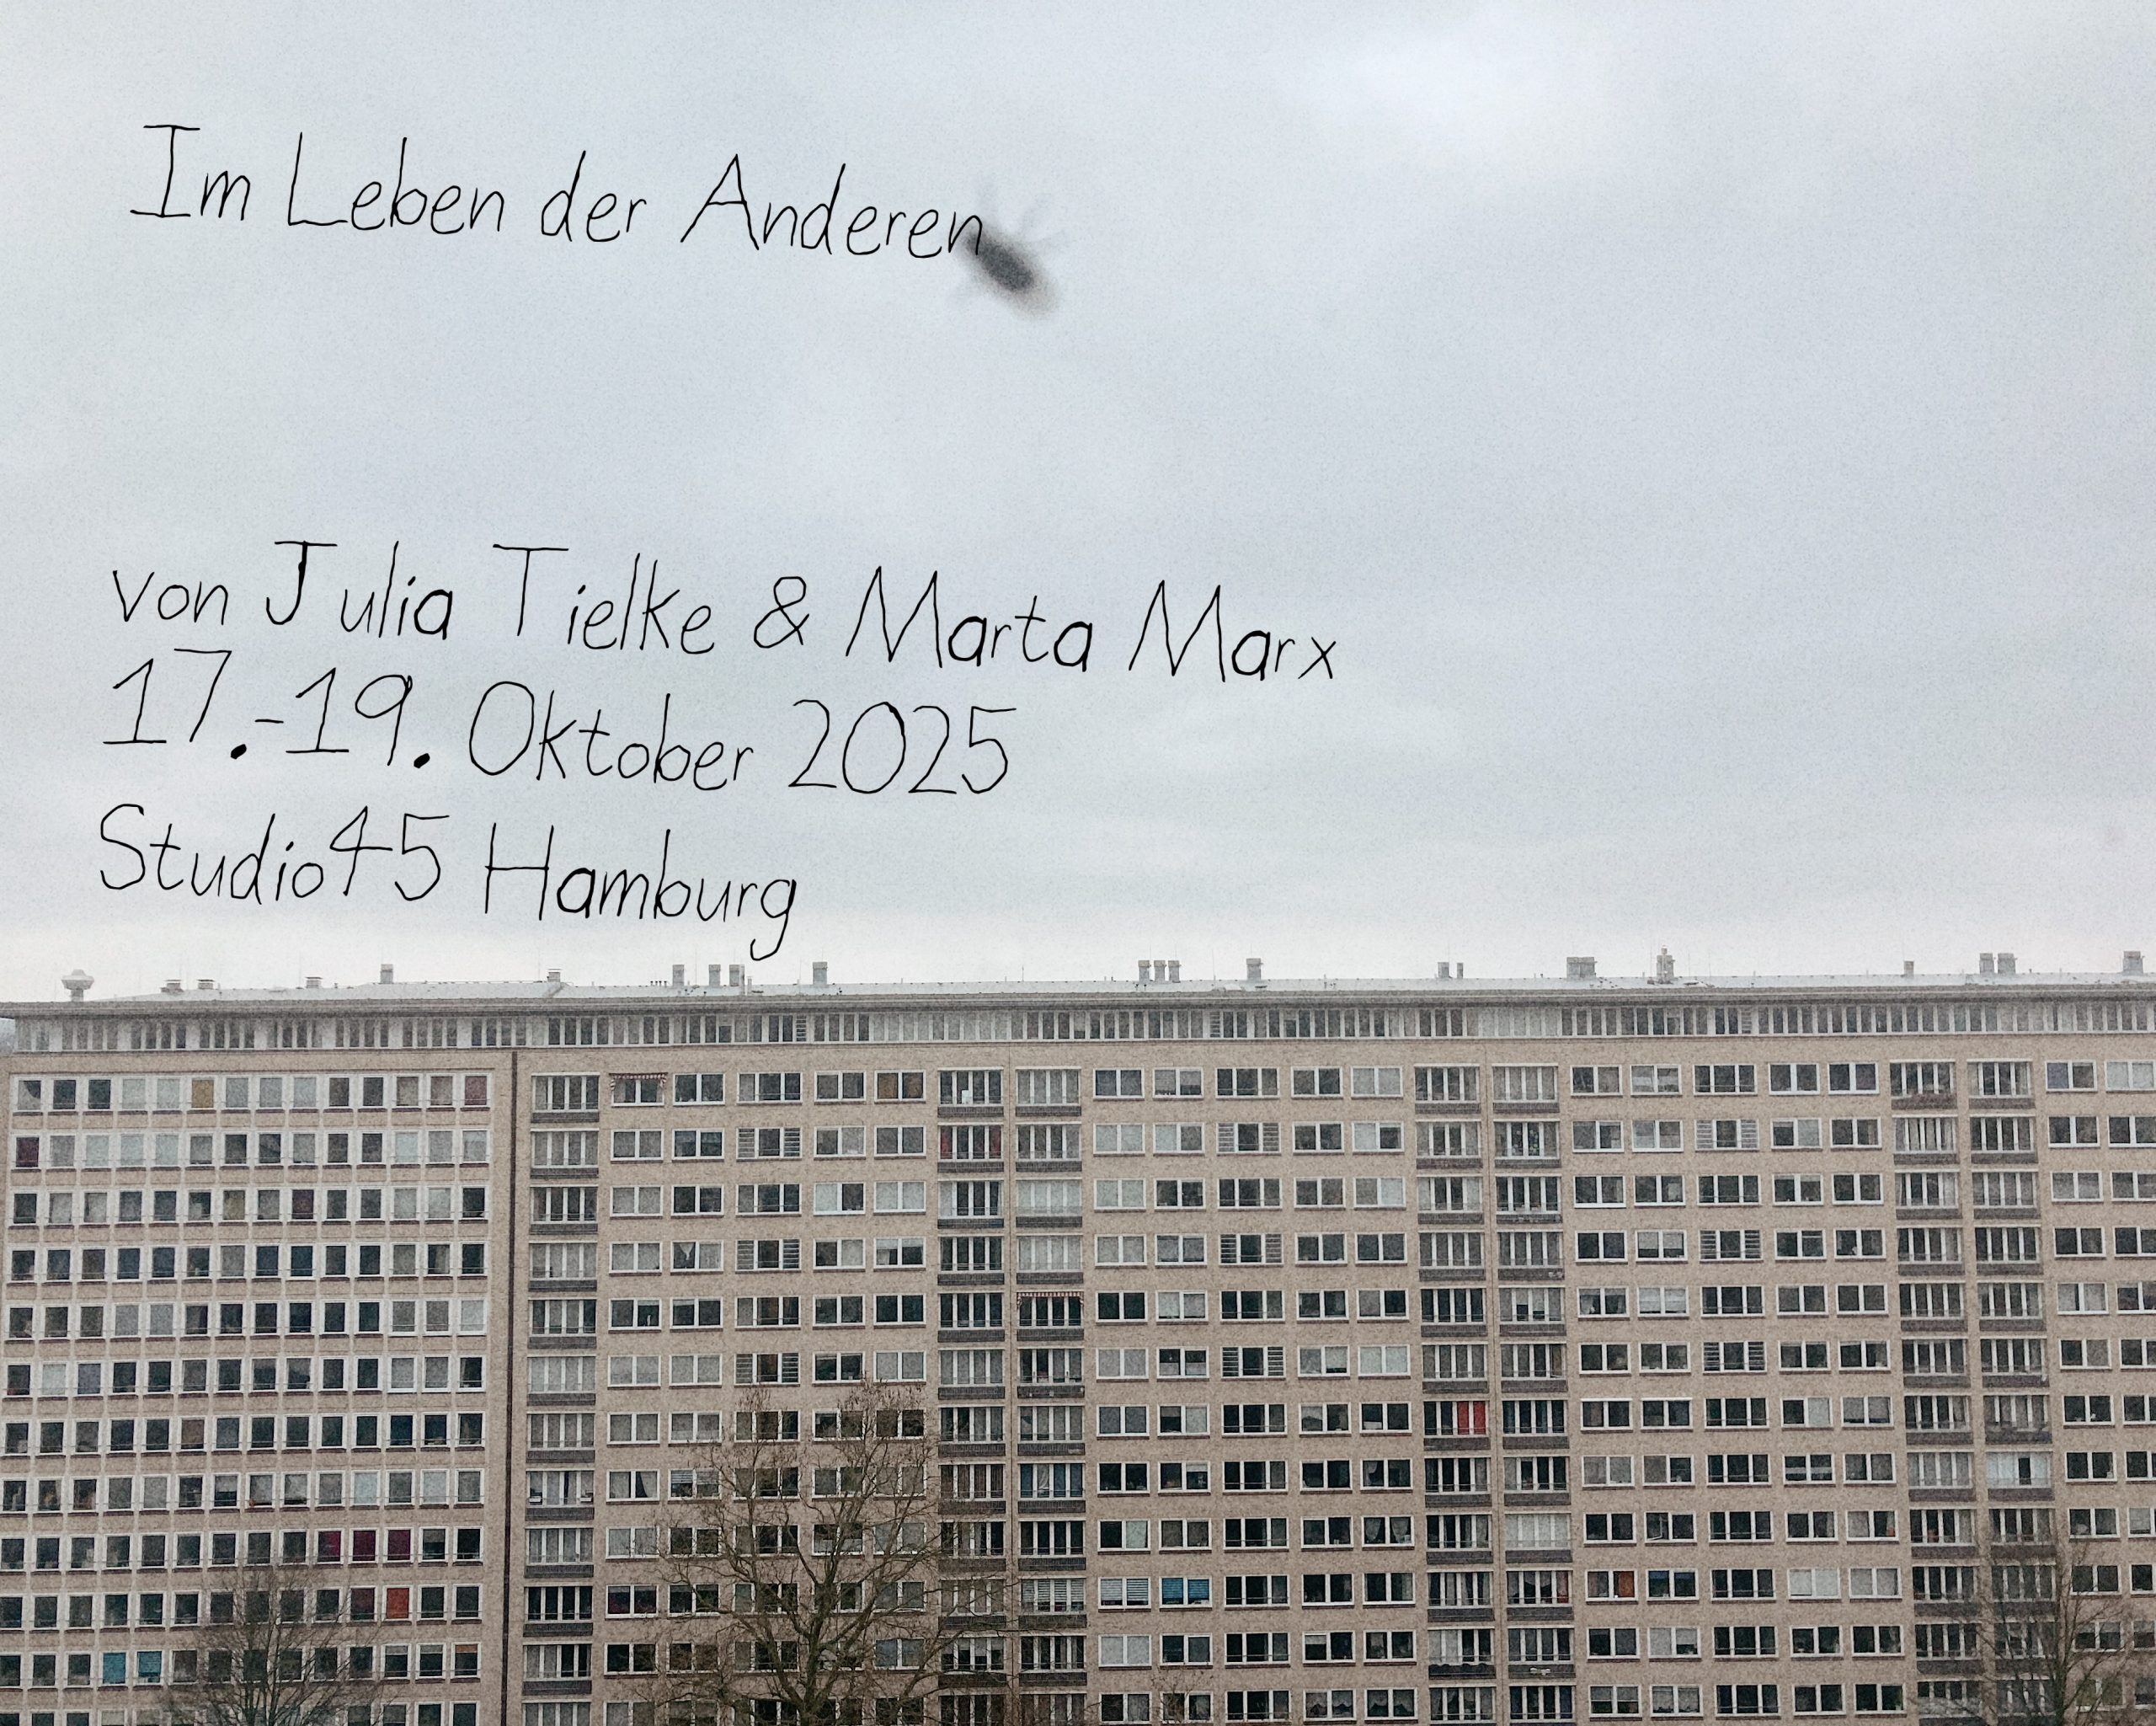 Im Leben der Anderen
von Julia Tielke & Marta Marx
17.-19. Oktober 2025
Studio45 Hamburg